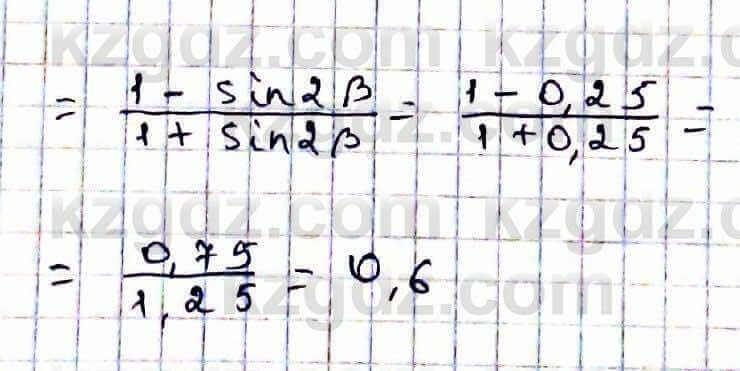 kzgdz.com kzgdz.com
= (1 - sin2β)/(1 + sin2β) = (1 - 0,25)/(1 + 0,25) =
kzgdz.com kzgdz.com
= 0,75/1,25 = 0,6